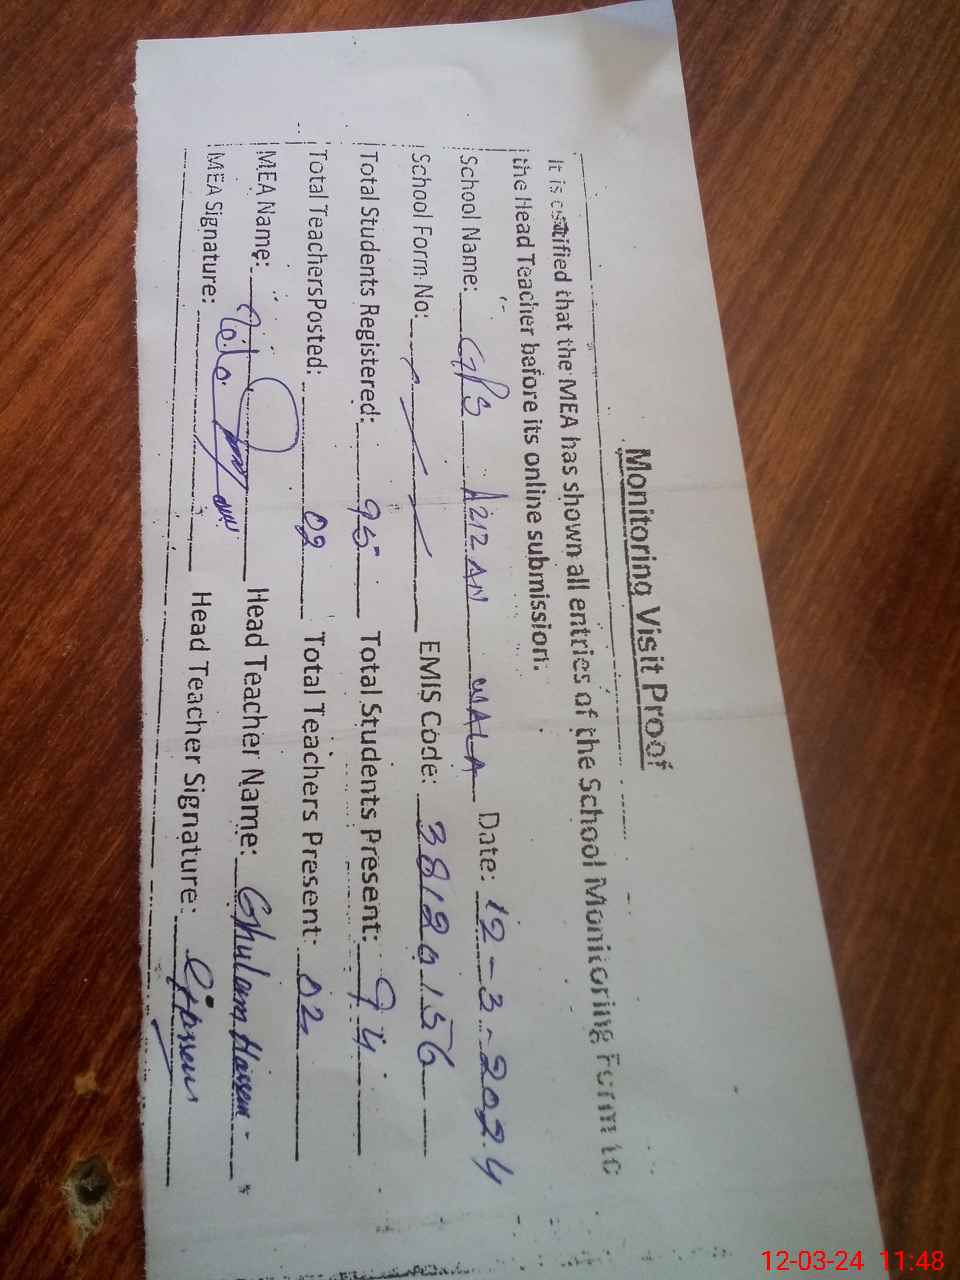 Monitoring Visit Proof
It is certified that the MEA has shown all entries of the School Monitoring Form to
the Head Teacher before its online submission.
School Name: GPS AZIZAN WALA Date: 12-3-2024
School Form No: EMIS Code: 38120156
Total Students Registered: 95 Total Students Present: 94
Total TeachersPosted: 02 Total Teachers Present: 02
MEA Name: Head Teacher Name: Ghulam Hassan
MEA Signature: Head Teacher Signature: GHassan
12-03-24 11:48